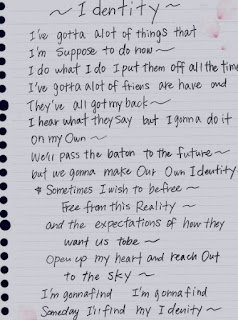 ~ Identity ~
I've gotta alot of things that
I'm suppose to do now ~
I do what I do I put them off all the time
I've gotta alot of friens are have and
They've all got my back ~
I hear what they say but I gonna do it
on my Own ~
We'll pass the baton to the future ~
but we gonna make our Own Identity
* Sometimes I wish to be free ~
Free from this Reality ~
and the expectations of how they
want us tobe ~
Open up my heart and reach Out
to the sky ~
I'm gonnafind I'm gonnafind
Someday I'll find my Idenity ~